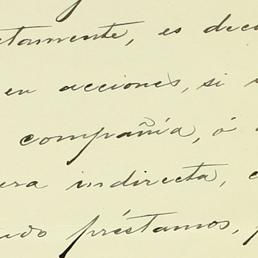 ctamente, es deci
en acciones, si s
compañía, ó
era indirecta, c
ndo préstamos, p